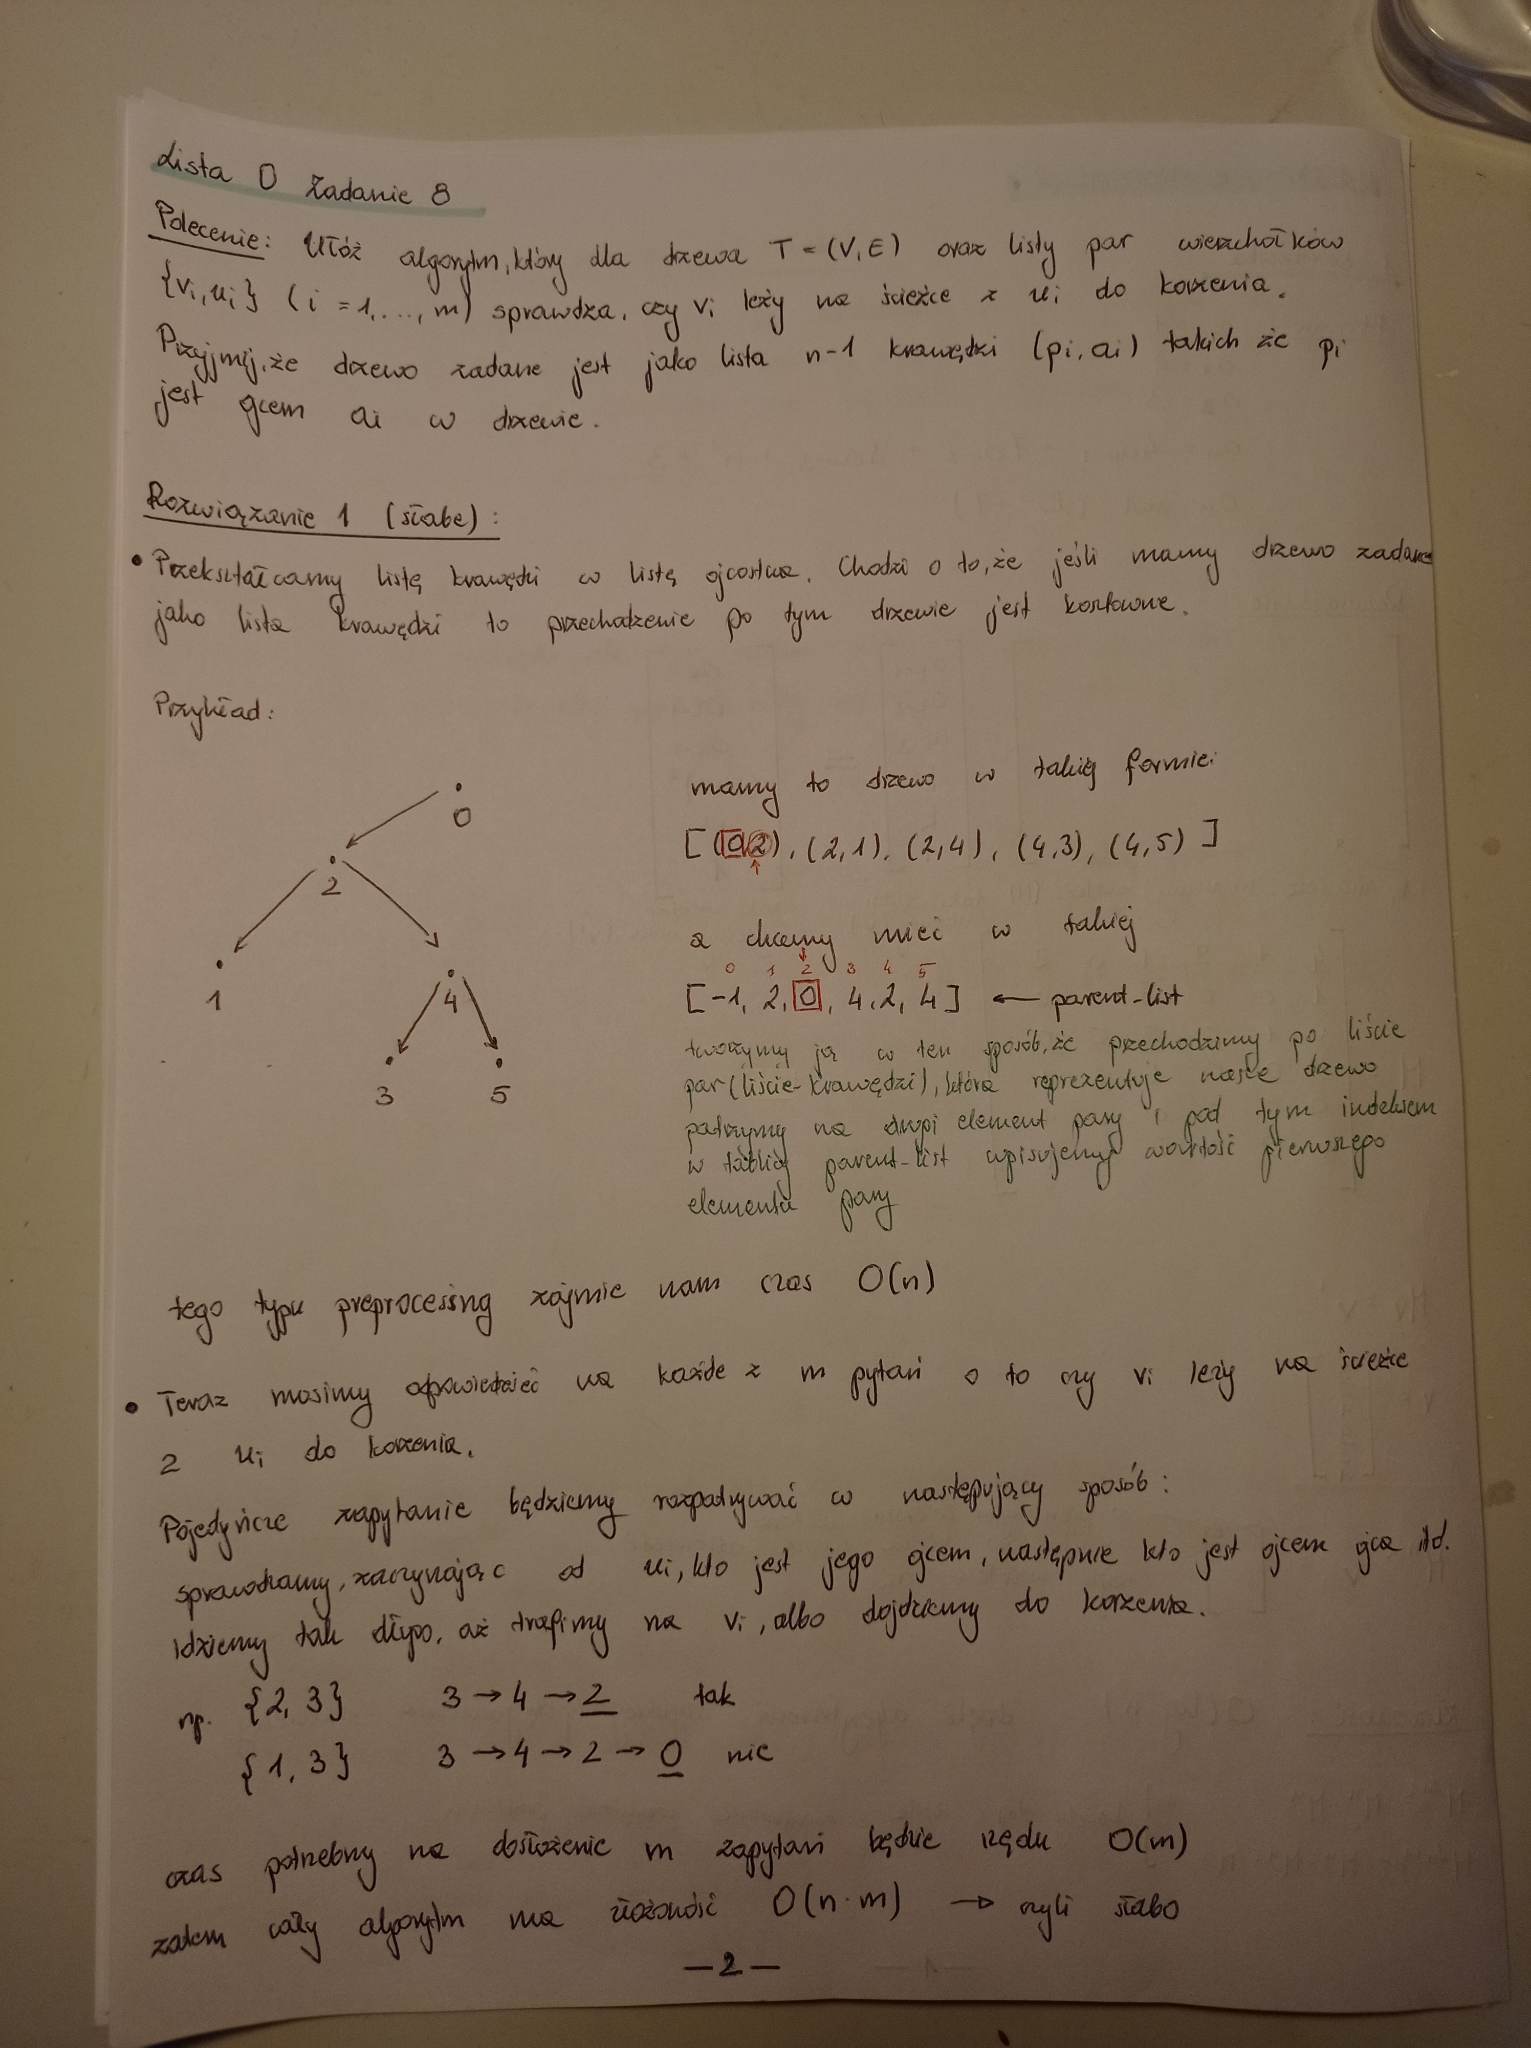 Lista 0 Zadanie 8
Polecenie: Ułóż algorytm, który dla drzewa T = (V, E) oraz listy par wierzchołków
{vi, ui} (i = 1, ..., m) sprawdza, czy vi leży na ścieżce z ui do korzenia.
Przyjmij, że drzewo zadane jest jako lista n-1 krawędzi (pi, ai) takich że pi
jest ojcem ai w drzewie.
Rozwiązanie 1 (słabe):
• Przekształcamy listę krawędzi w listę ojcostwa. Chodzi o to, że jeśli mamy drzewo zadane
jako lista krawędzi to przechodzenie po tym drzewie jest kosztowne.
Przykład:
0
2
1
4
3 5
mamy to drzewo w takiej formie:
[(0,2), (2,1), (2,4), (4,3), (4,5)]
↑
a chcemy mieć w takiej
↓
0 1 2 3 4 5
[-1, 2, 0, 4, 2, 4] ← parent-list
tworzymy ją w ten sposób, że przechodzimy po liście
par (liście krawędzi), która reprezentuje nasze drzewo
patrzymy na drugi element pary i pod tym indeksem
w tablicy parent-list wpisujemy wartość pierwszego
elementu pary
tego typu preprocessing zajmie nam czas O(n)
• Teraz musimy odpowiedzieć na każde z m pytań o to czy vi leży na ścieżce
z ui do korzenia.
Pojedyńcze zapytanie będziemy rozpatrywać w następujący sposób:
sprawdzamy, zaczynając od ui, kto jest jego ojcem, następnie kto jest ojcem ojca itd.
Idziemy tak długo, aż trafimy na vi, albo dojdziemy do korzenia.
np. {2, 3} 3 → 4 → 2 tak
{1, 3} 3 → 4 → 2 → 0 nie
czas potrzebny na m zapytań będzie rzędu O(m)
zatem cały algorytm ma złożoność O(n·m) → czyli słabo
— 2 —